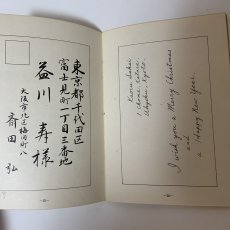 東京都千代田区
富士見町一丁目三番地
益川 寿様
大阪市北区梅田町八
斉田 弘
I wish you a Merry Christmas
and
a Happy New Year.